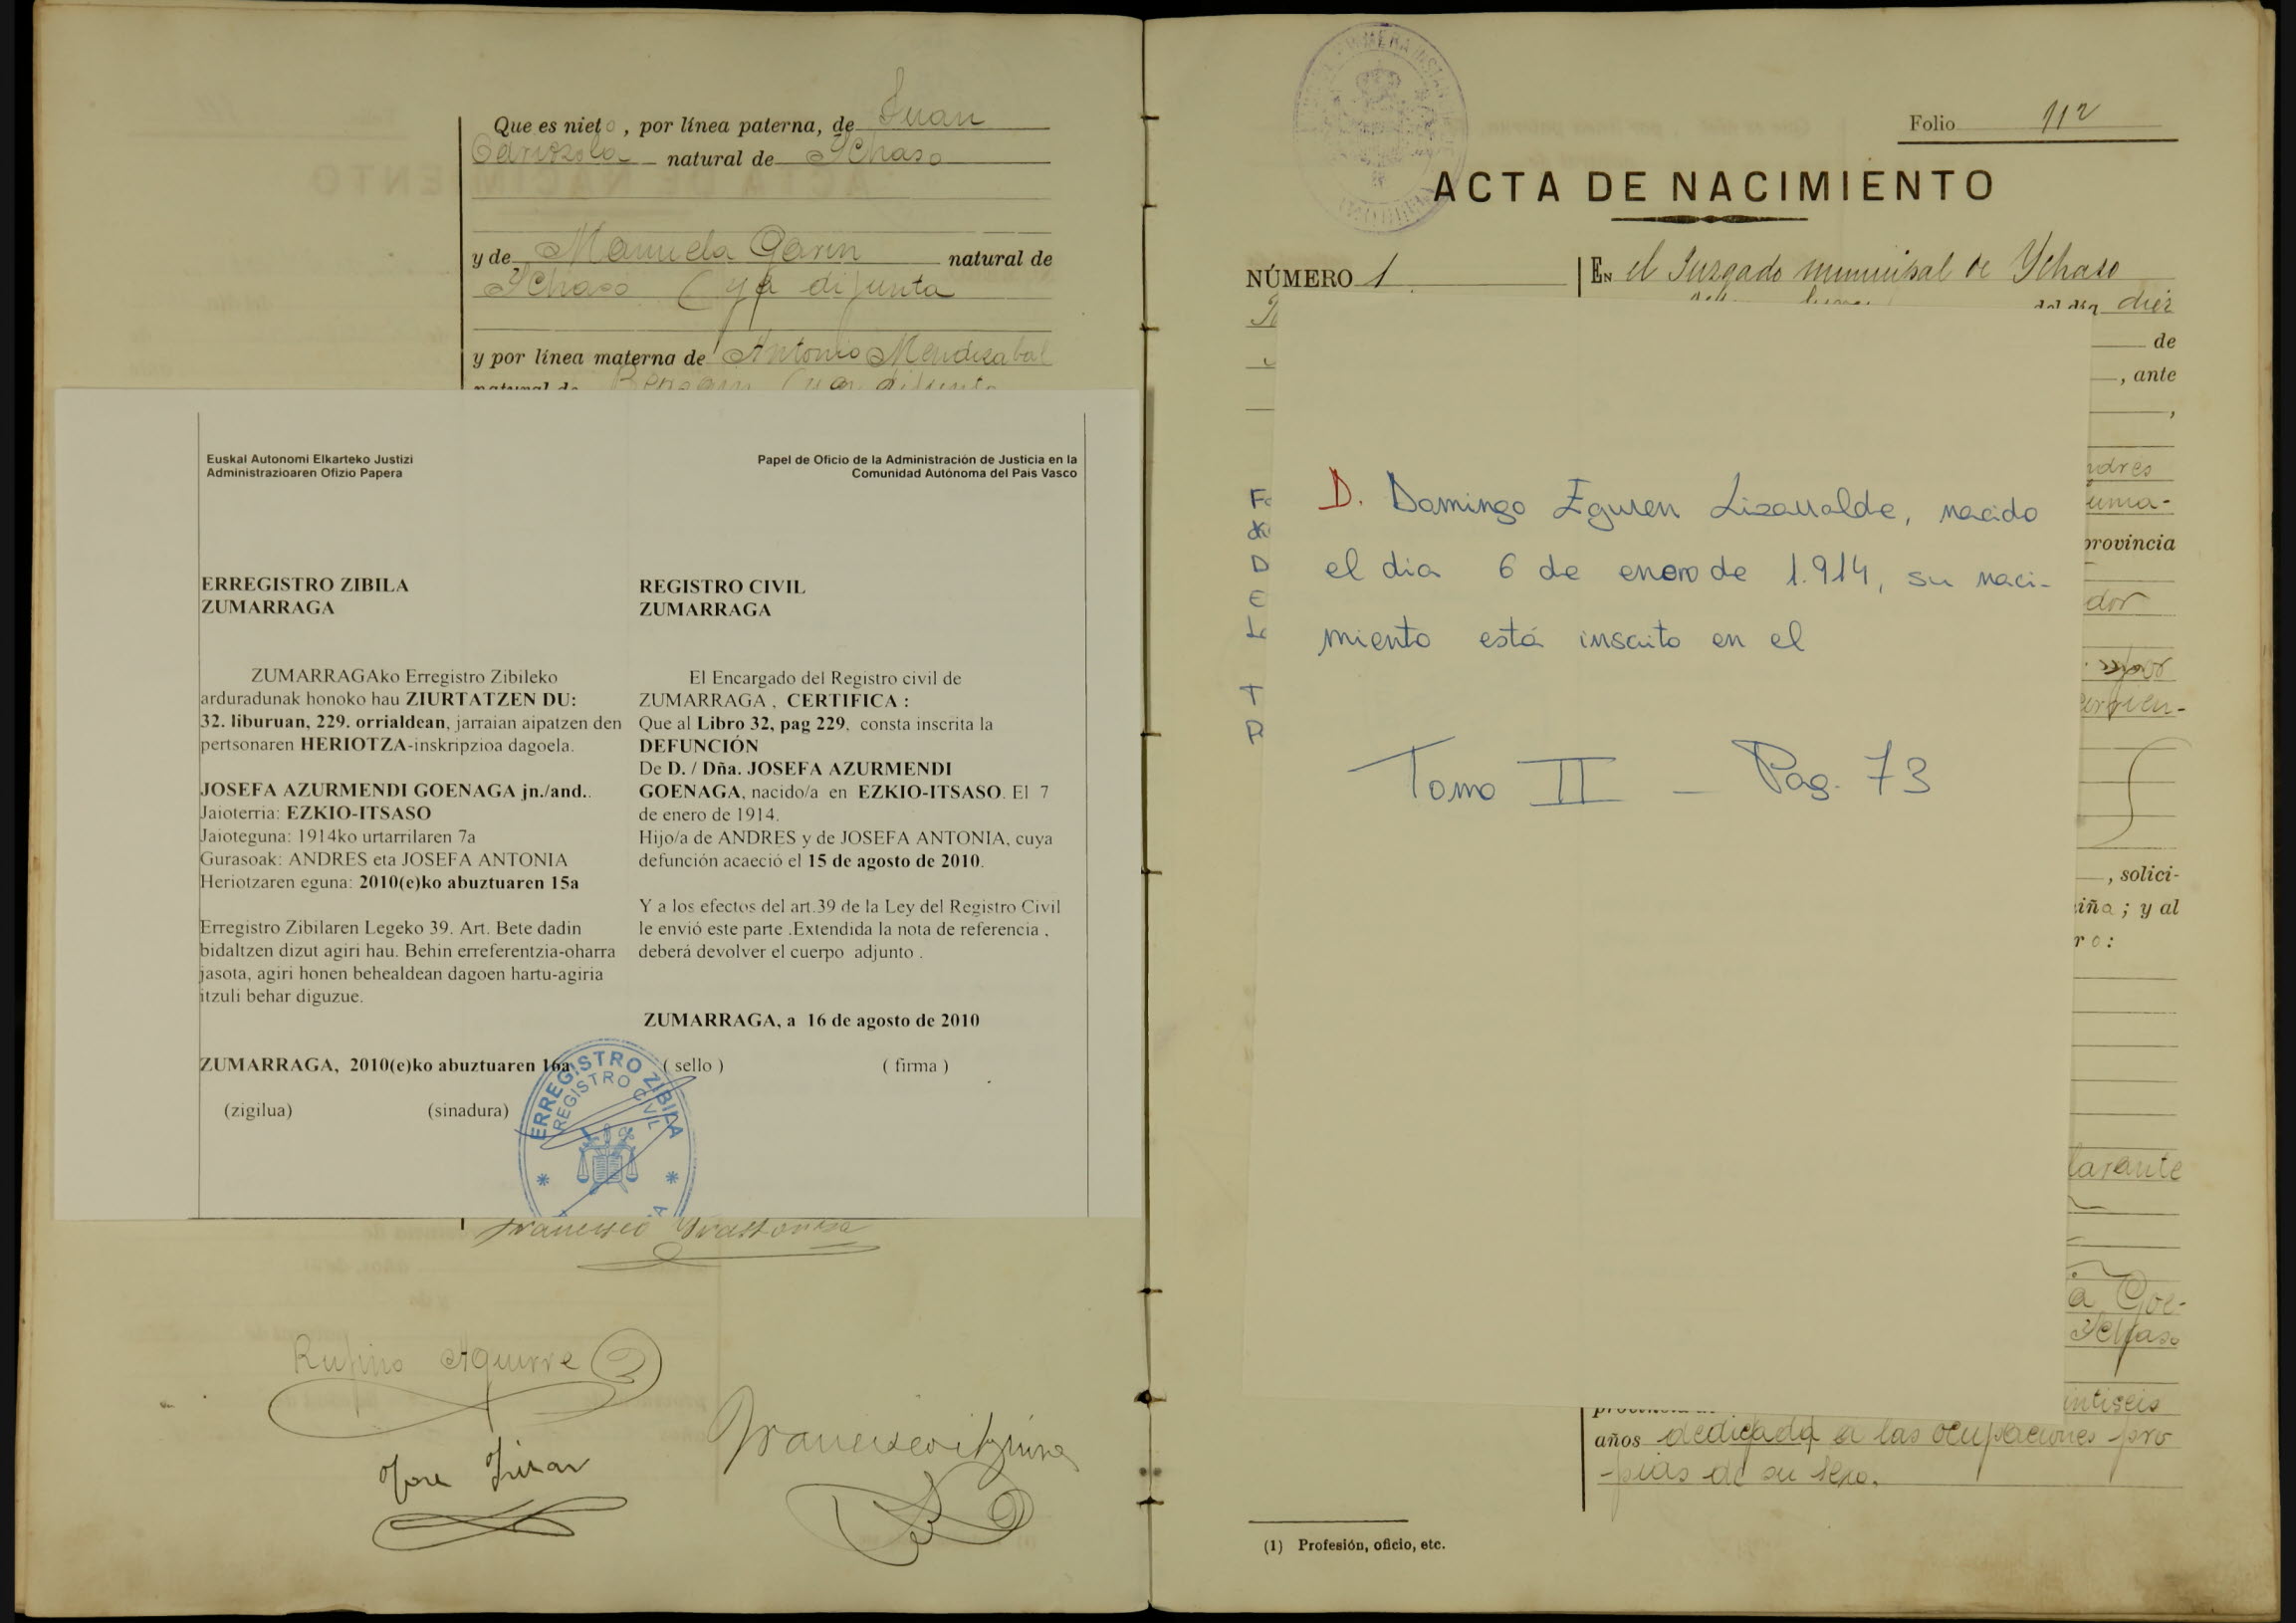 Que es nieto, por línea paterna, de Juan
natural de Ychaso
y de Manuela Garin natural de
Ychaso (ya difunta
y por línea materna de Antonio Mendizabal
Euskal Autonomi Elkarteko Justizi
Administrazioaren Ofizio Papera
Papel de Oficio de la Administración de Justicia en la
Comunidad Autónoma del País Vasco
ERREGISTRO ZIBILA
ZUMARRAGA
ZUMARRAGAko Erregistro Zibileko
arduradunak honoko hau ZIURTATZEN DU:
32. liburuan, 229. orrialdean, jarraian aipatzen den
pertsonaren HERIOTZA-inskripzioa dagoela.
JOSEFA AZURMENDI GOENAGA jn./and..
Jaioterria: EZKIO-ITSASO
Jaioteguna: 1914ko urtarrilaren 7a
Gurasoak: ANDRES eta JOSEFA ANTONIA
Heriotzaren eguna: 2010(e)ko abuztuaren 15a
Erregistro Zibilaren Legeko 39. Art. Bete dadin
bidaltzen dizut agiri hau. Behin erreferentzia-oharra
jasota, agiri honen behealdean dagoen hartu-agiria
itzuli behar diguzue.
ZUMARRAGA, 2010(e)ko abuztuaren 16a
(zigilua) (sinadura)
REGISTRO CIVIL
ZUMARRAGA
El Encargado del Registro civil de
ZUMARRAGA , CERTIFICA :
Que al Libro 32, pag 229, consta inscrita la
DEFUNCIÓN
De D. / Dña. JOSEFA AZURMENDI
GOENAGA, nacido/a en EZKIO-ITSASO. El 7
de enero de 1914.
Hijo/a de ANDRES y de JOSEFA ANTONIA, cuya
defunción acaeció el 15 de agosto de 2010.
Y a los efectos del art.39 de la Ley del Registro Civil
le envió este parte .Extendida la nota de referencia ,
deberá devolver el cuerpo adjunto .
ZUMARRAGA, a 16 de agosto de 2010
( sello ) ( firma )
ERREGISTRO ZIBILA
REGISTRO CIVIL
Rufino Aguirre
Folio 112
ACTA DE NACIMIENTO
NÚMERO 1
EN el Juzgado municipal de Ychaso
del día diez
de
, ante
,
provincia
D. Domingo Eguren Lizarralde, nacido
el dia 6 de enero de 1.914, su naci-
miento está inscrito en el
Tomo II - Pag. 73
, solici-
; y al
ro:
larante
Goe-
Ychaso
intiseis
años dedicada a las ocupaciones pro
pias de su sexo.
(1) Profesión, oficio, etc.